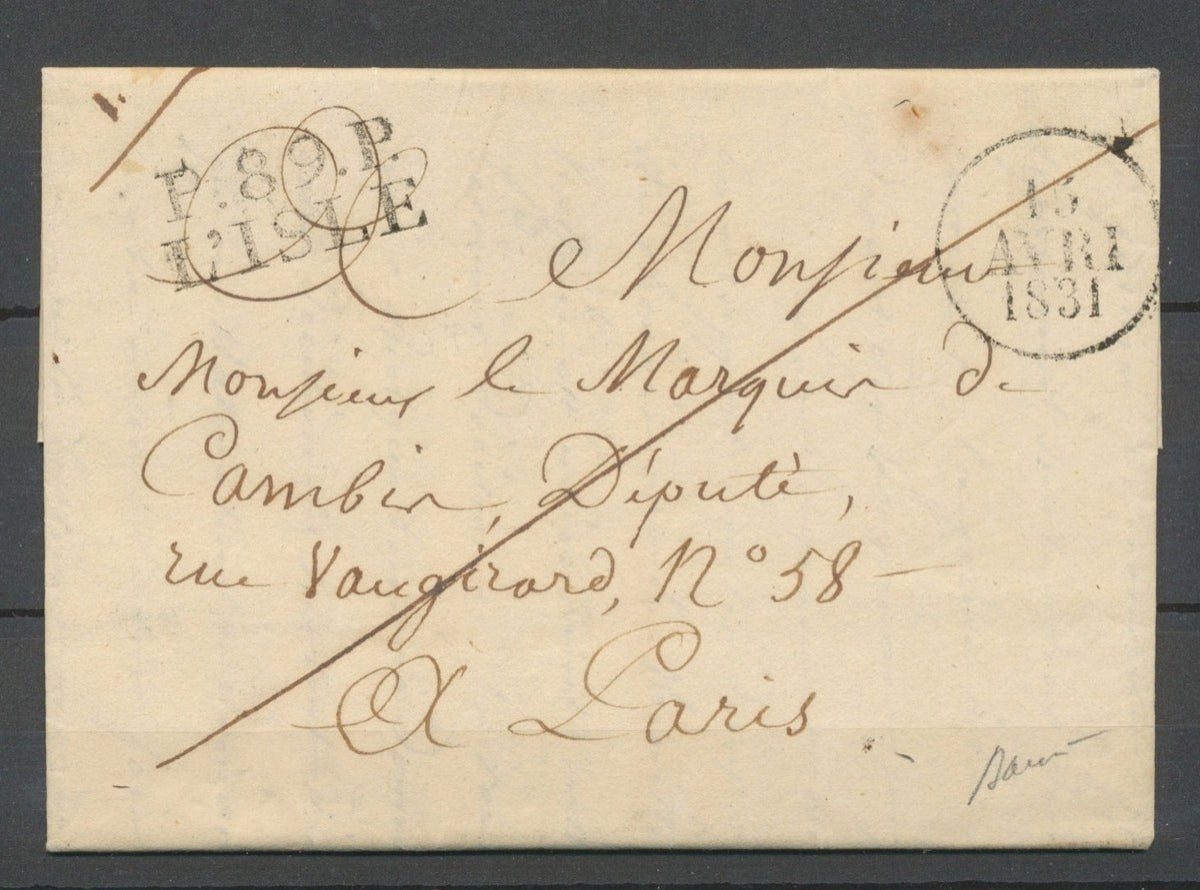 P.89.P.
L'ISLE
15
AVRI
1831
Monsieur
Monsieur le Marquis de
Cambis, Député,
rue Vaugirard, N° 58 —
A Paris